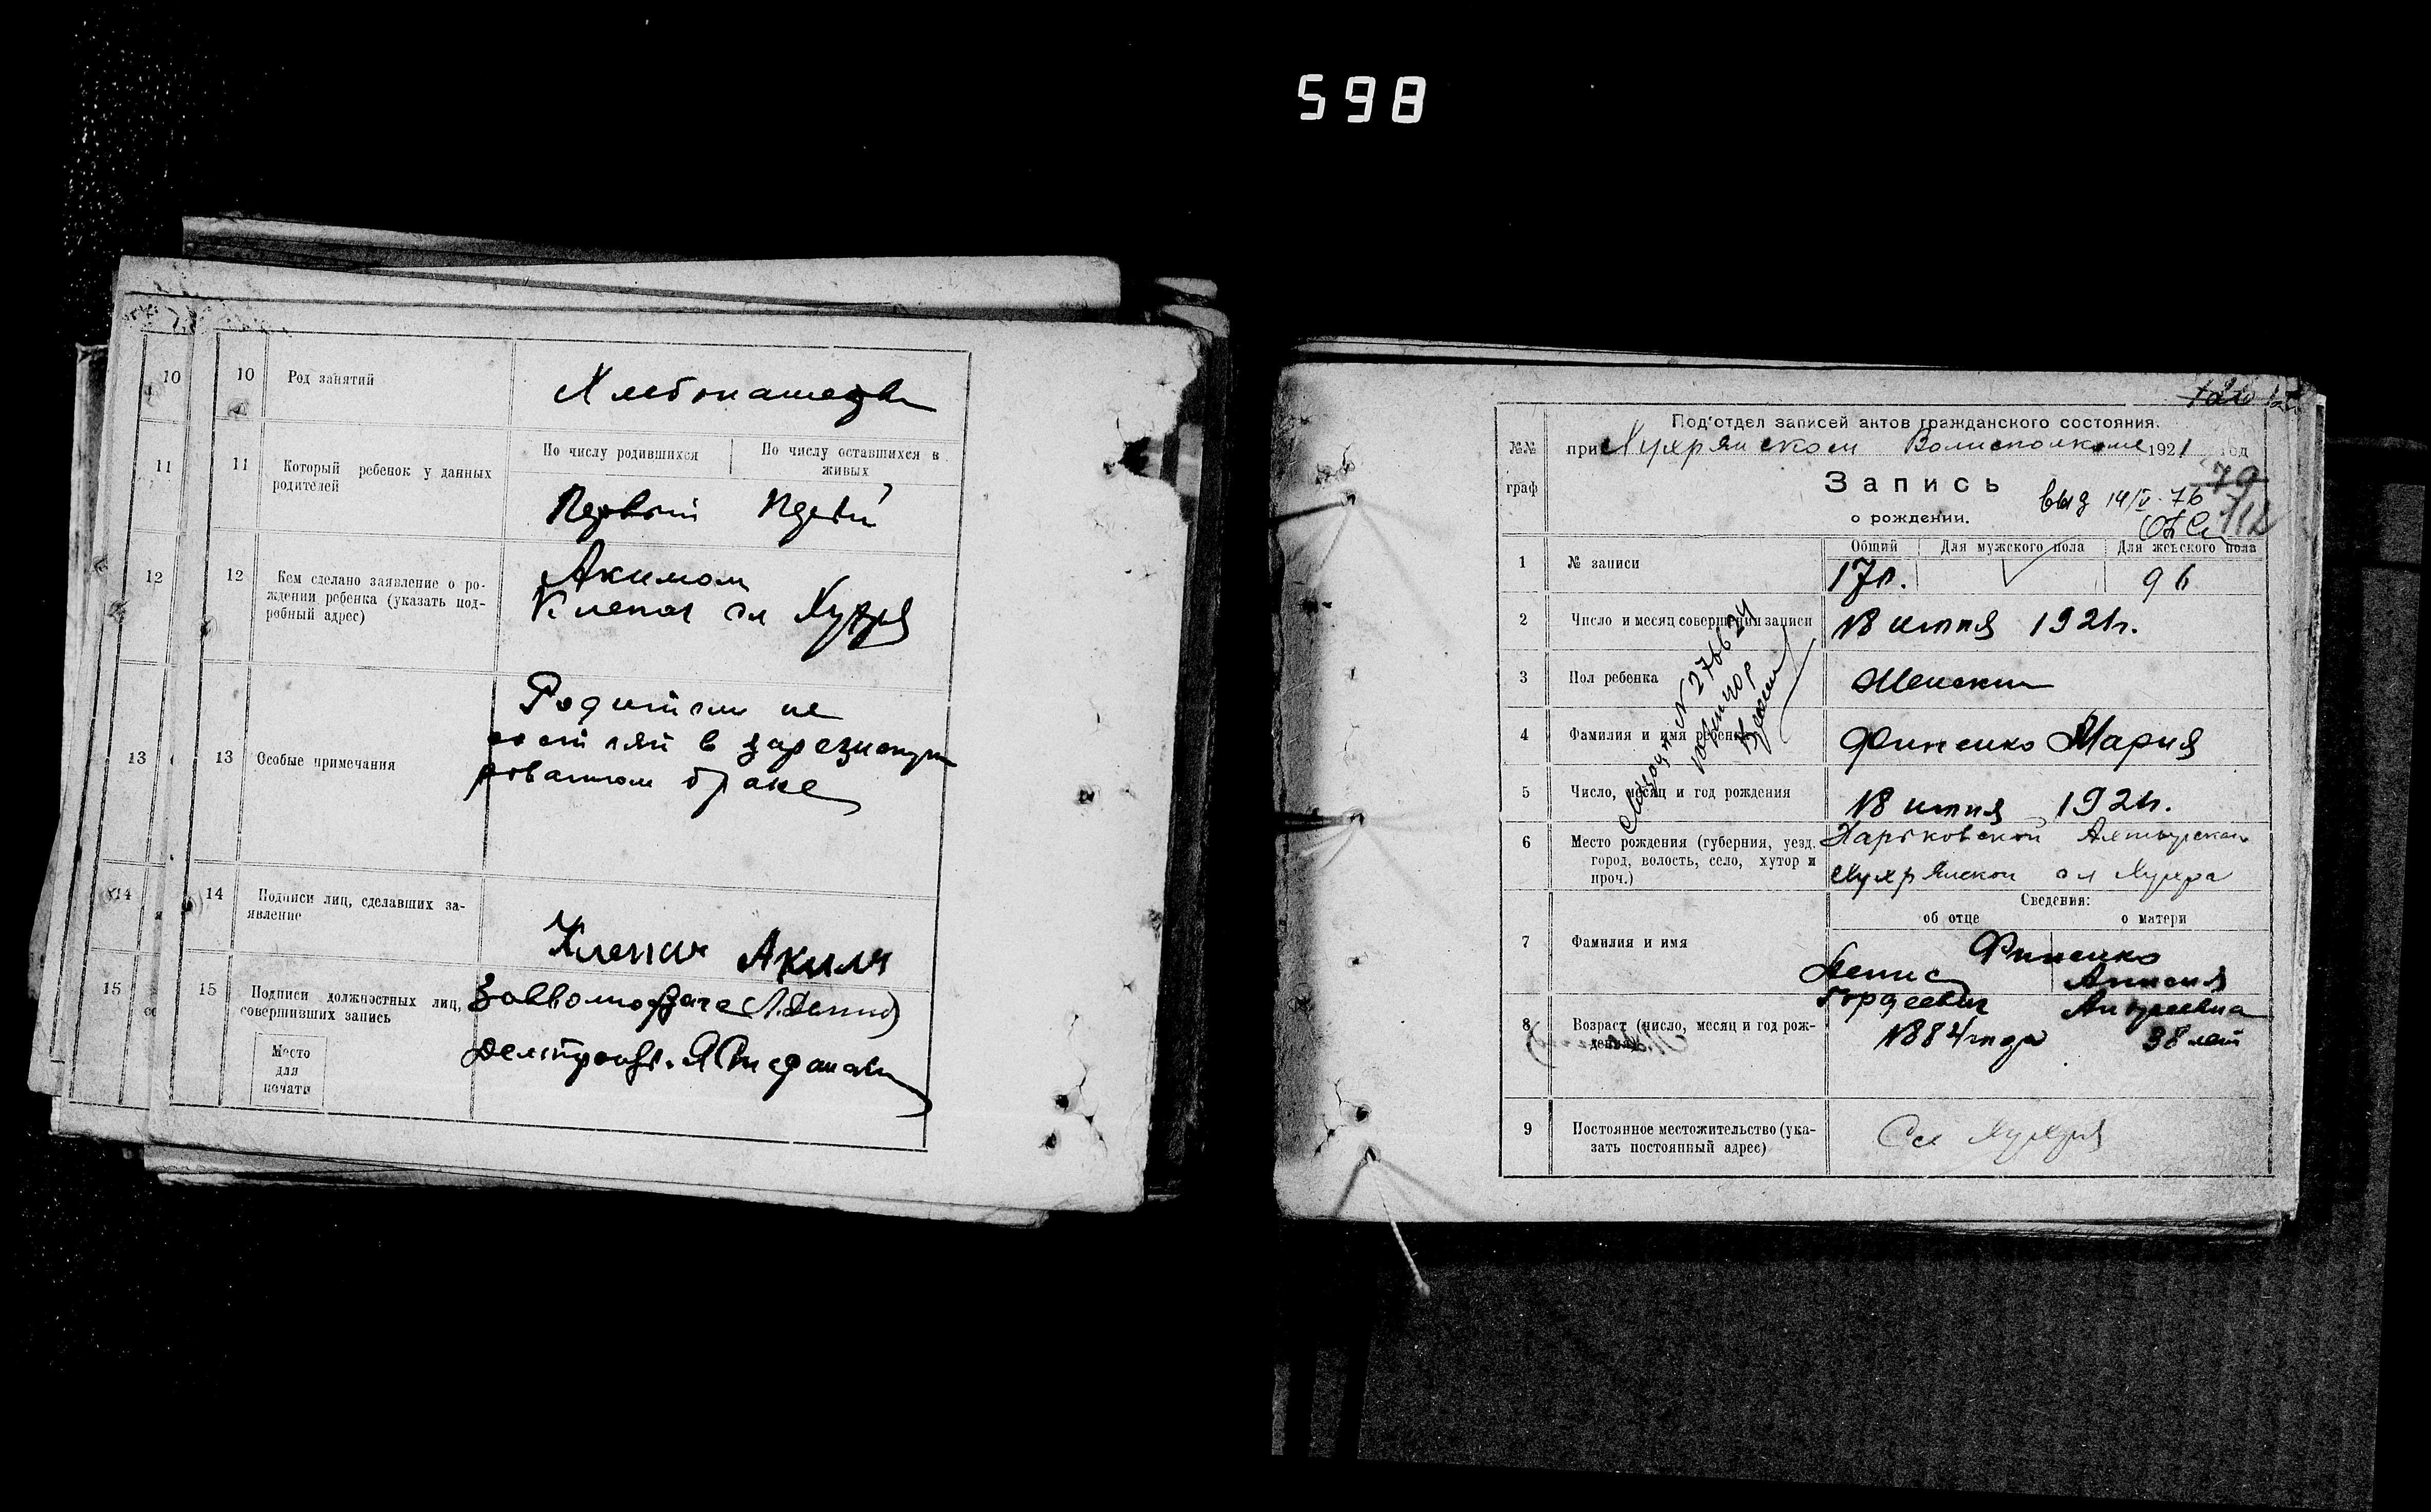 598
10
10
Род занятий
Хлебопашец
11
11
Который ребенок у данных
родителей
По числу родившихся
По числу оставшихся в
живых
Первый
12
12
Кем сделано заявление о ро-
ждении ребенка (указать под-
робный адрес)
Акимом
Клепач сл Хухря
13
13
Особые примечания
Родители не
в зарегистри
рованном браке
14
14
Подписи лиц, сделавших за-
явление
Клепач Аким
15
15
Подписи должностных лиц,
совершивших запись
Место
для
печати
120
Под'отдел записей актов гражданского состояния.
№№
граф
при Хухрянском Волисполкоме 1921 год
Запись
о рождении.
79
выд 14/V-76
1
№ записи
Общий
Для мужского пола
Для женского пола
96
2
Число и месяц совершения записи
18 июня 1921г.
3
Пол ребенка
Женский
4
Фамилия и имя ребенка
Финенко Мария
5
Число, месяц и год рождения
18 июня 1921г.
6
Место рождения (губерния, уезд,
город, волость, село, хутор и
проч.)
Харьковской Ахтырской
Хухрянской сл Хухра
Сведения:
об отце
о матери
7
Фамилия и имя
Финенко
Денис
Гордеевич
Андреевна
8
Возраст (число, месяц и год рож-
дения)
1884 года
38 лет
9
Постоянное местожительство (ука-
зать постоянный адрес)
Сл Хухря
№ 276624